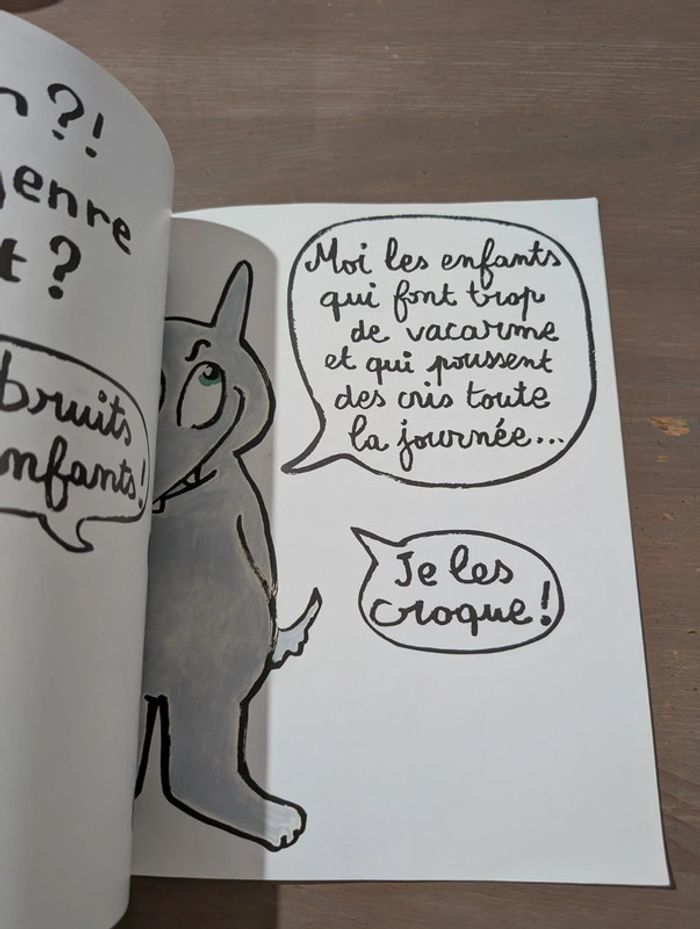 ?!
enre
t ?
bruits
nfants !
Moi les enfants
qui font trop
de vacarme
et qui poussent
des cris toute
la journée...
Je les
croque !